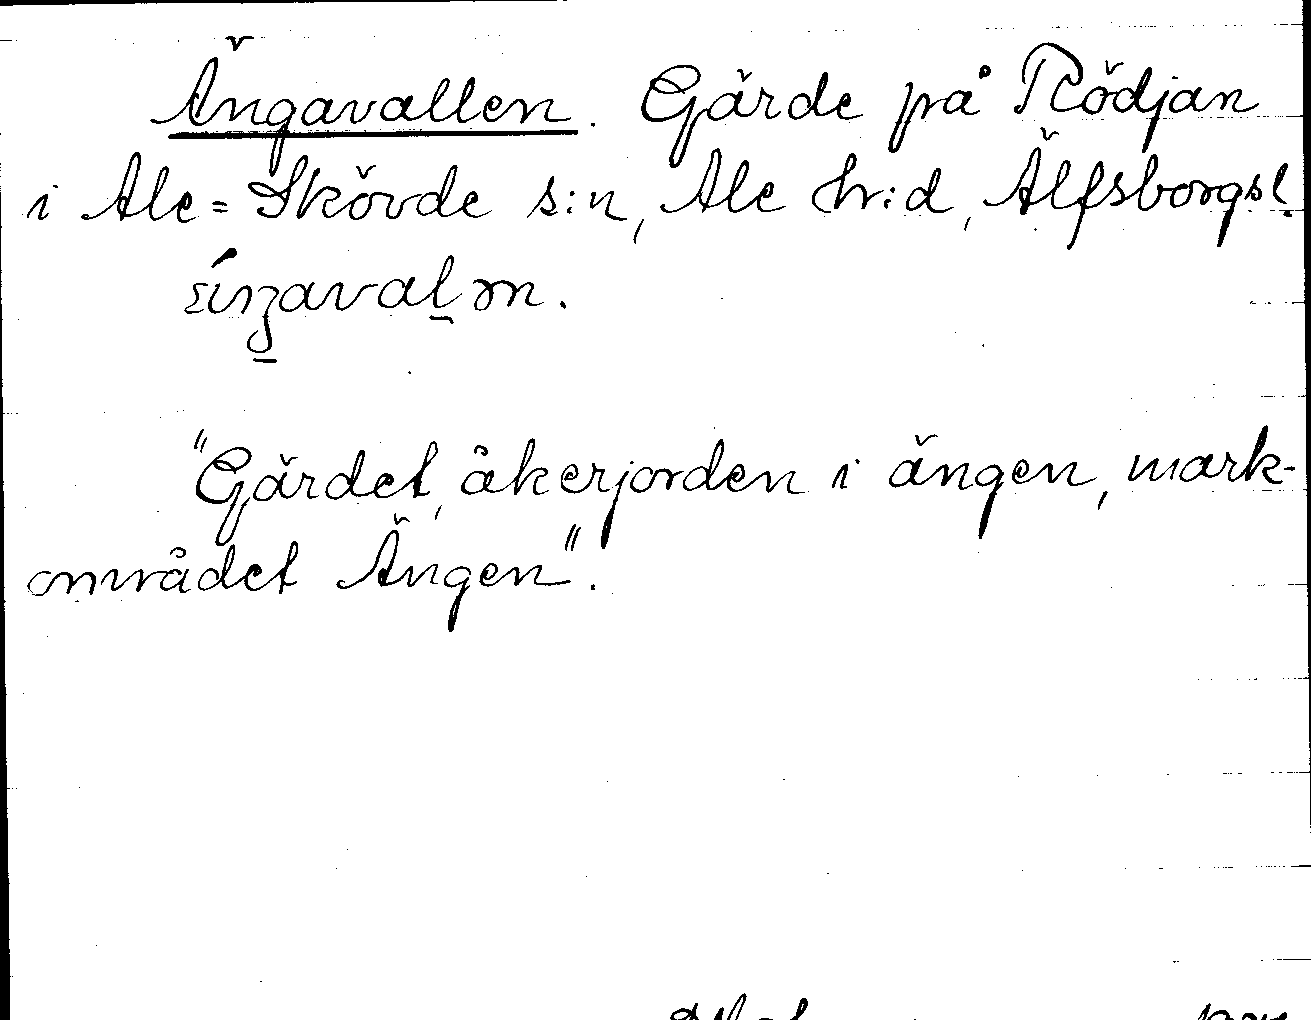 Ängavallen. Gärde på Rödjan
i Ale=Skövde s:n, Ale hr:d, Älfsborgs l.
"Gärdet, åkerjorden i ängen, mark-
området Ängen".